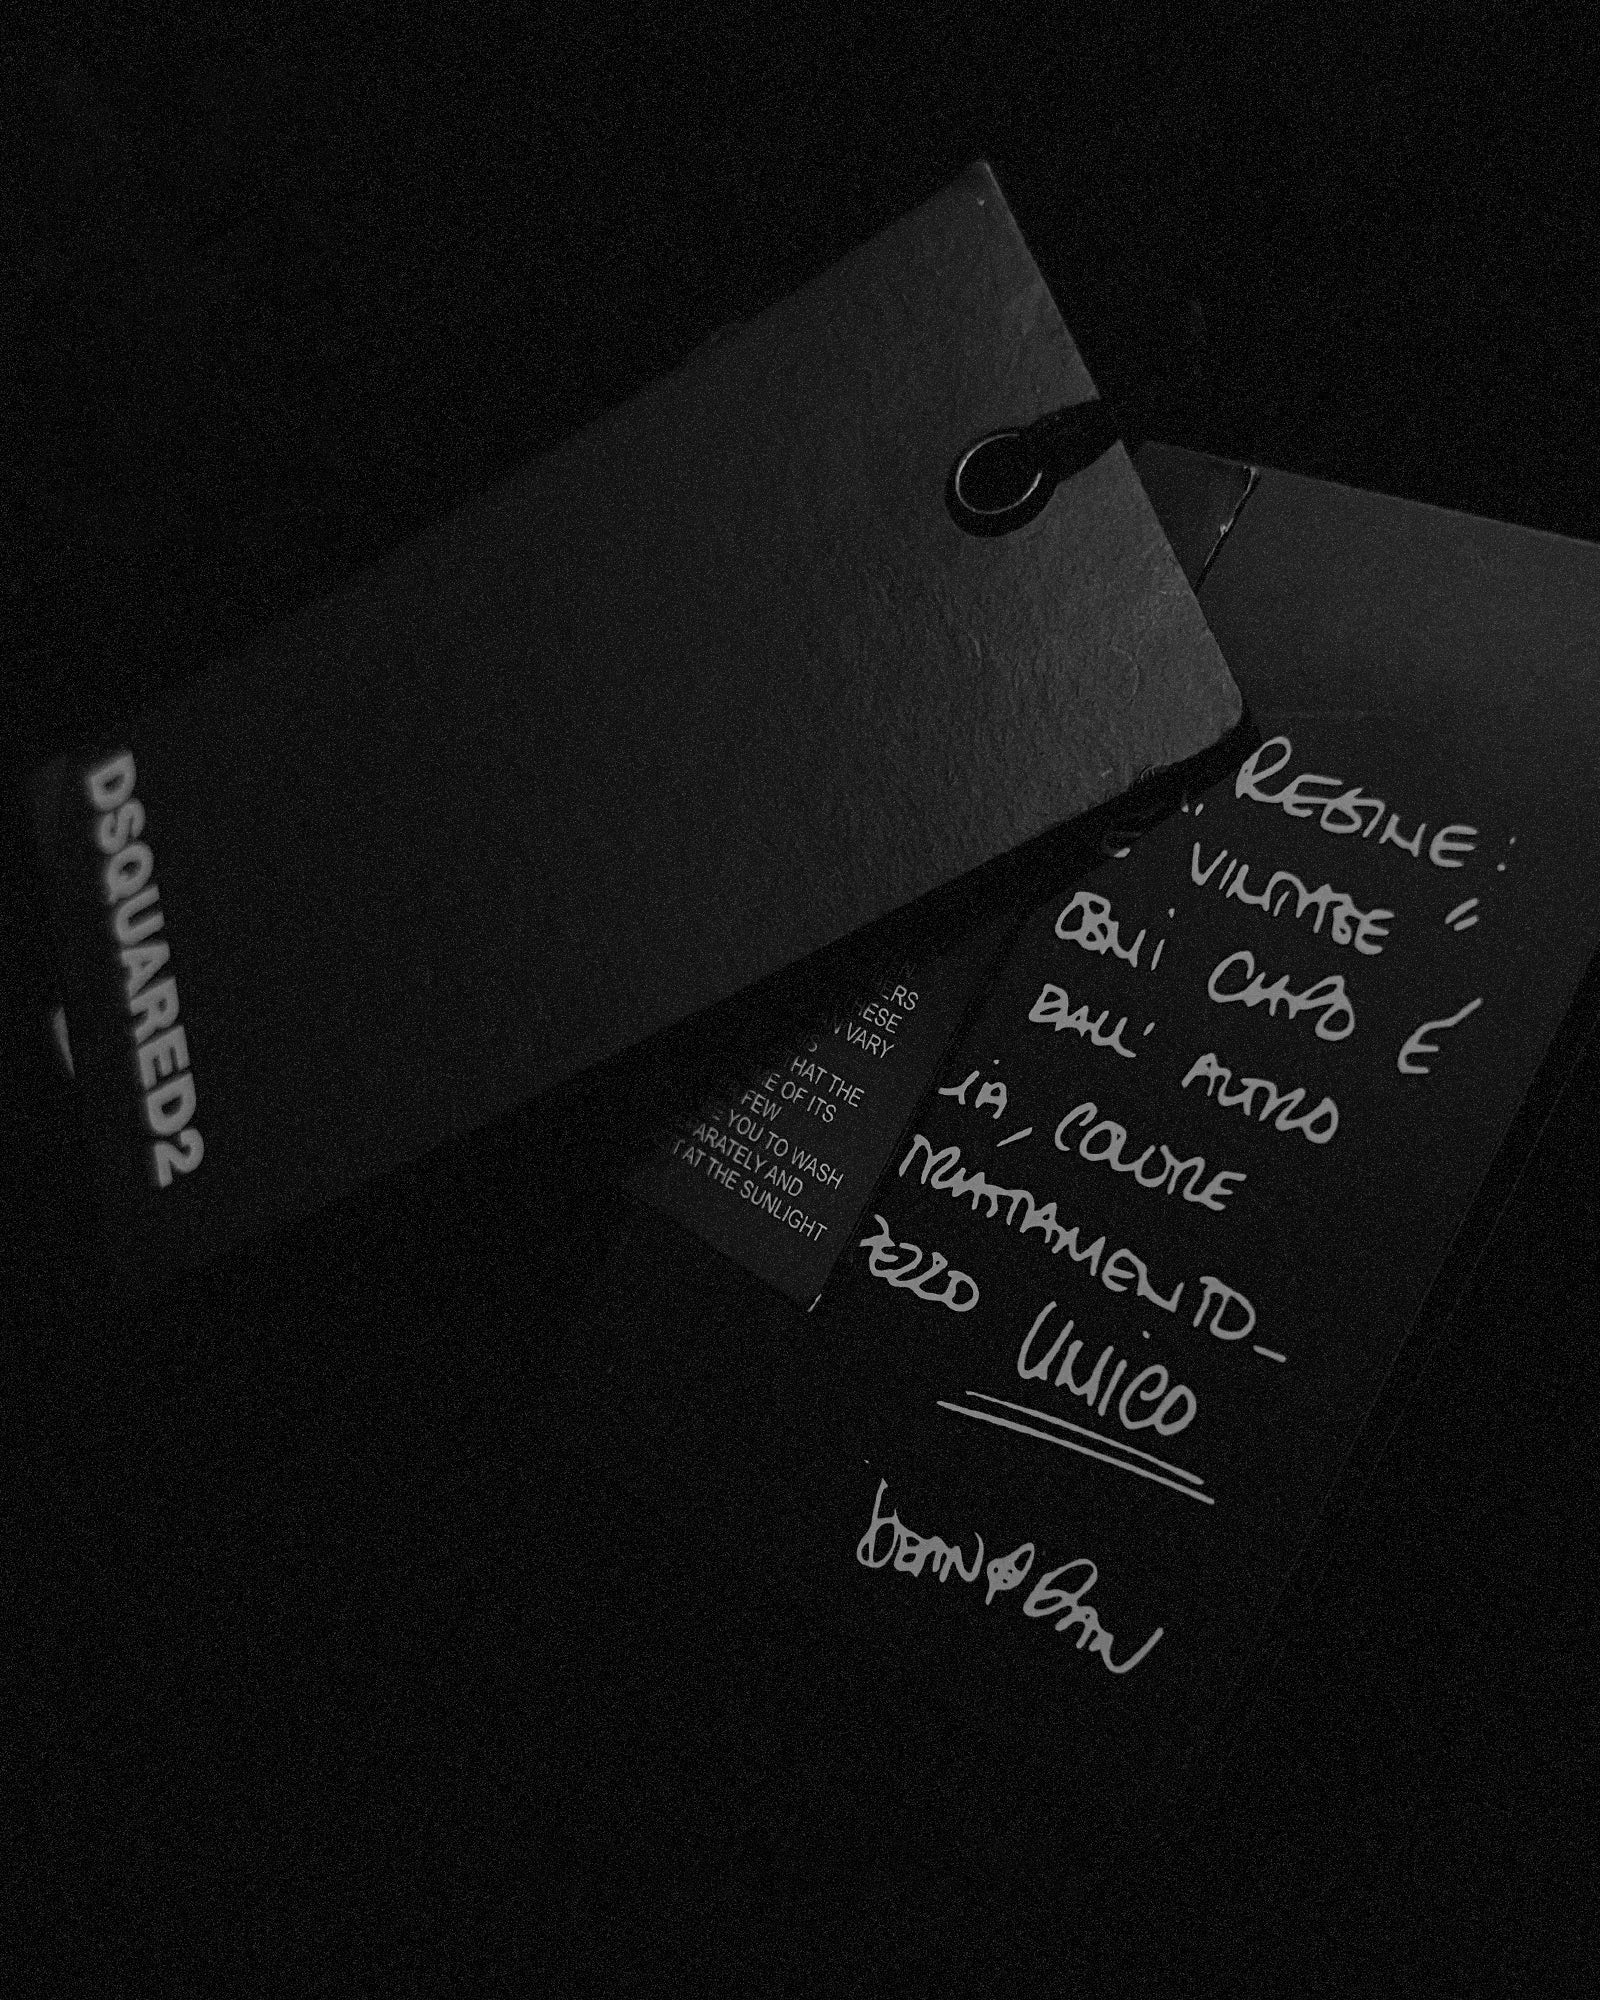 DSQUARED2
ERS
HESE
VARY
HAT THE
E OF ITS
FEW
YOU TO WASH
ARATELY AND
AT THE SUNLIGHT
REGINE:
VINTAGE"
OGNI CAPO È
DALL'ALTRO
IA, COLORE
TRATTAMENTO_
PEZZO UNICO
DEAN & DAN